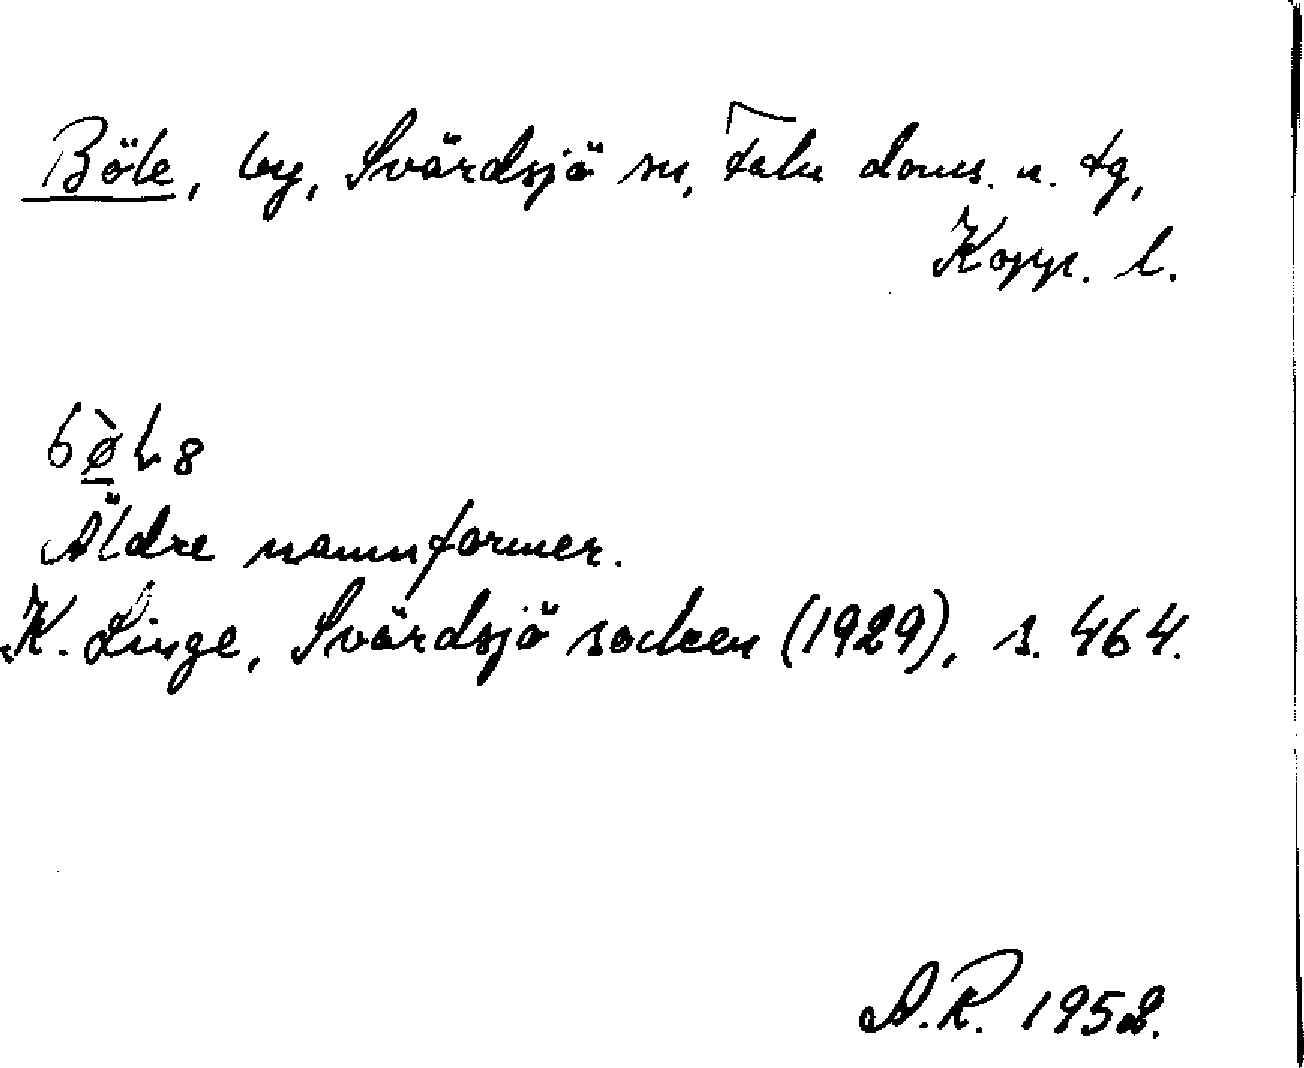 Böle, by, Svärdsjö sn, Falu doms. n. tg,
Kopp. l.
Äldre namnformer.
K. Linge, Svärdsjö socken (1929), s. 464.
A.R. 1952.